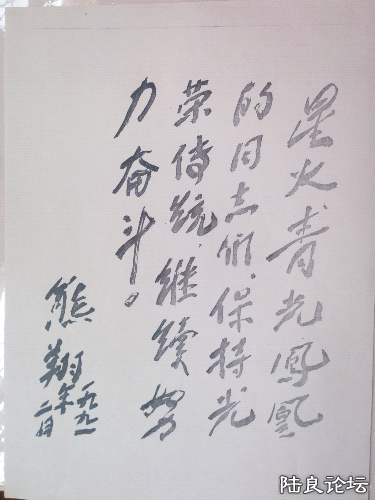 星火青光凤凰
的同志们，保持光
荣传统，继续努
力奋斗。
熊翔
一九九一
年二月
陆良论坛